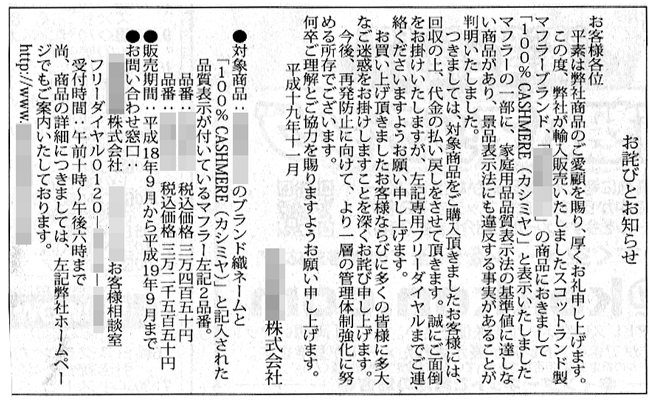 お詫びとお知らせ
お客様各位
平素は弊社商品のご愛顧を賜り、厚くお礼申し上げます。
この度、弊社が輸入販売いたしましたスコットランド製
マフラーブランド「　　　」の商品におきまして
「100％CASHMERE（カシミヤ）」と表示いたしました
マフラーの一部に、家庭用品品質表示法の基準値に達しな
い商品があり、景品表示法にも違反する事実があることが
判明いたしました。
つきましては、対象商品をご購入頂きましたお客様には、
回収の上、代金の払い戻しをさせて頂きます。誠にご面倒
をお掛けいたしますが、左記専用フリーダイヤルまでご連
絡くださいますようお願い申し上げます。
お買い上げ頂きましたお客様ならびに多くの皆様に多大
なご迷惑をお掛けしますことを深くお詫び申し上げます。
今後、再発防止に向けて、より一層の管理体制強化に努
める所存でございます。
何卒ご理解とご協力を賜りますようお願い申し上げます。
平成十九年十一月
株式会社
●対象商品：　　　のブランド織ネームと
「100％CASHMERE（カシミヤ）」と記入された
品質表示が付いているマフラー左記2品番。
品番：　　　税込価格 三万四百五十円
品番：　　　税込価格 三万二千五百五十円
●販売期間：平成18年9月から平成19年9月まで
●お問い合わせ窓口：
株式会社　　お客様相談室
フリーダイヤル0120－　－
受付時間：午前十時～午後六時まで
尚、商品の詳細につきましては、左記弊社ホームペー
ジでもご案内いたしております。
http://www.